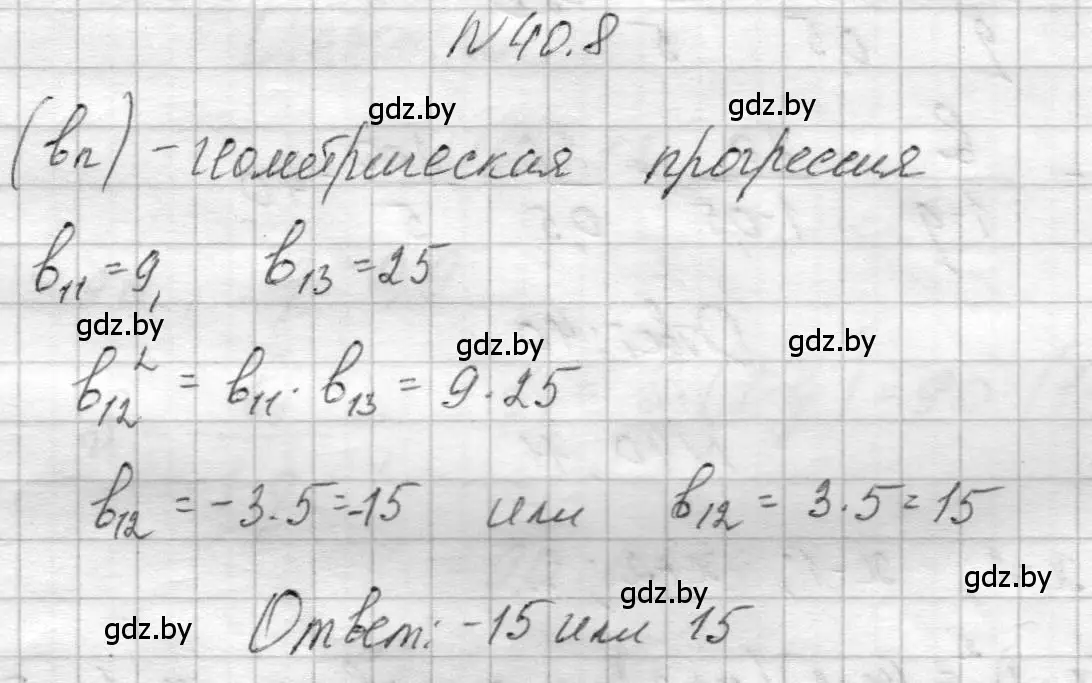 N 40.8
gdz.by gdz.by
(bn) - геометрическая прогрессия
b₁₁ = 9, b₁₃ = 25
gdz.by gdz.by gdz.by
b₁₂² = b₁₁ · b₁₃ = 9 · 25
b₁₂ = -3 · 5 = -15 или b₁₂ = 3 · 5 = 15
gdz.by gdz.by gdz.by
Ответ: -15 или 15